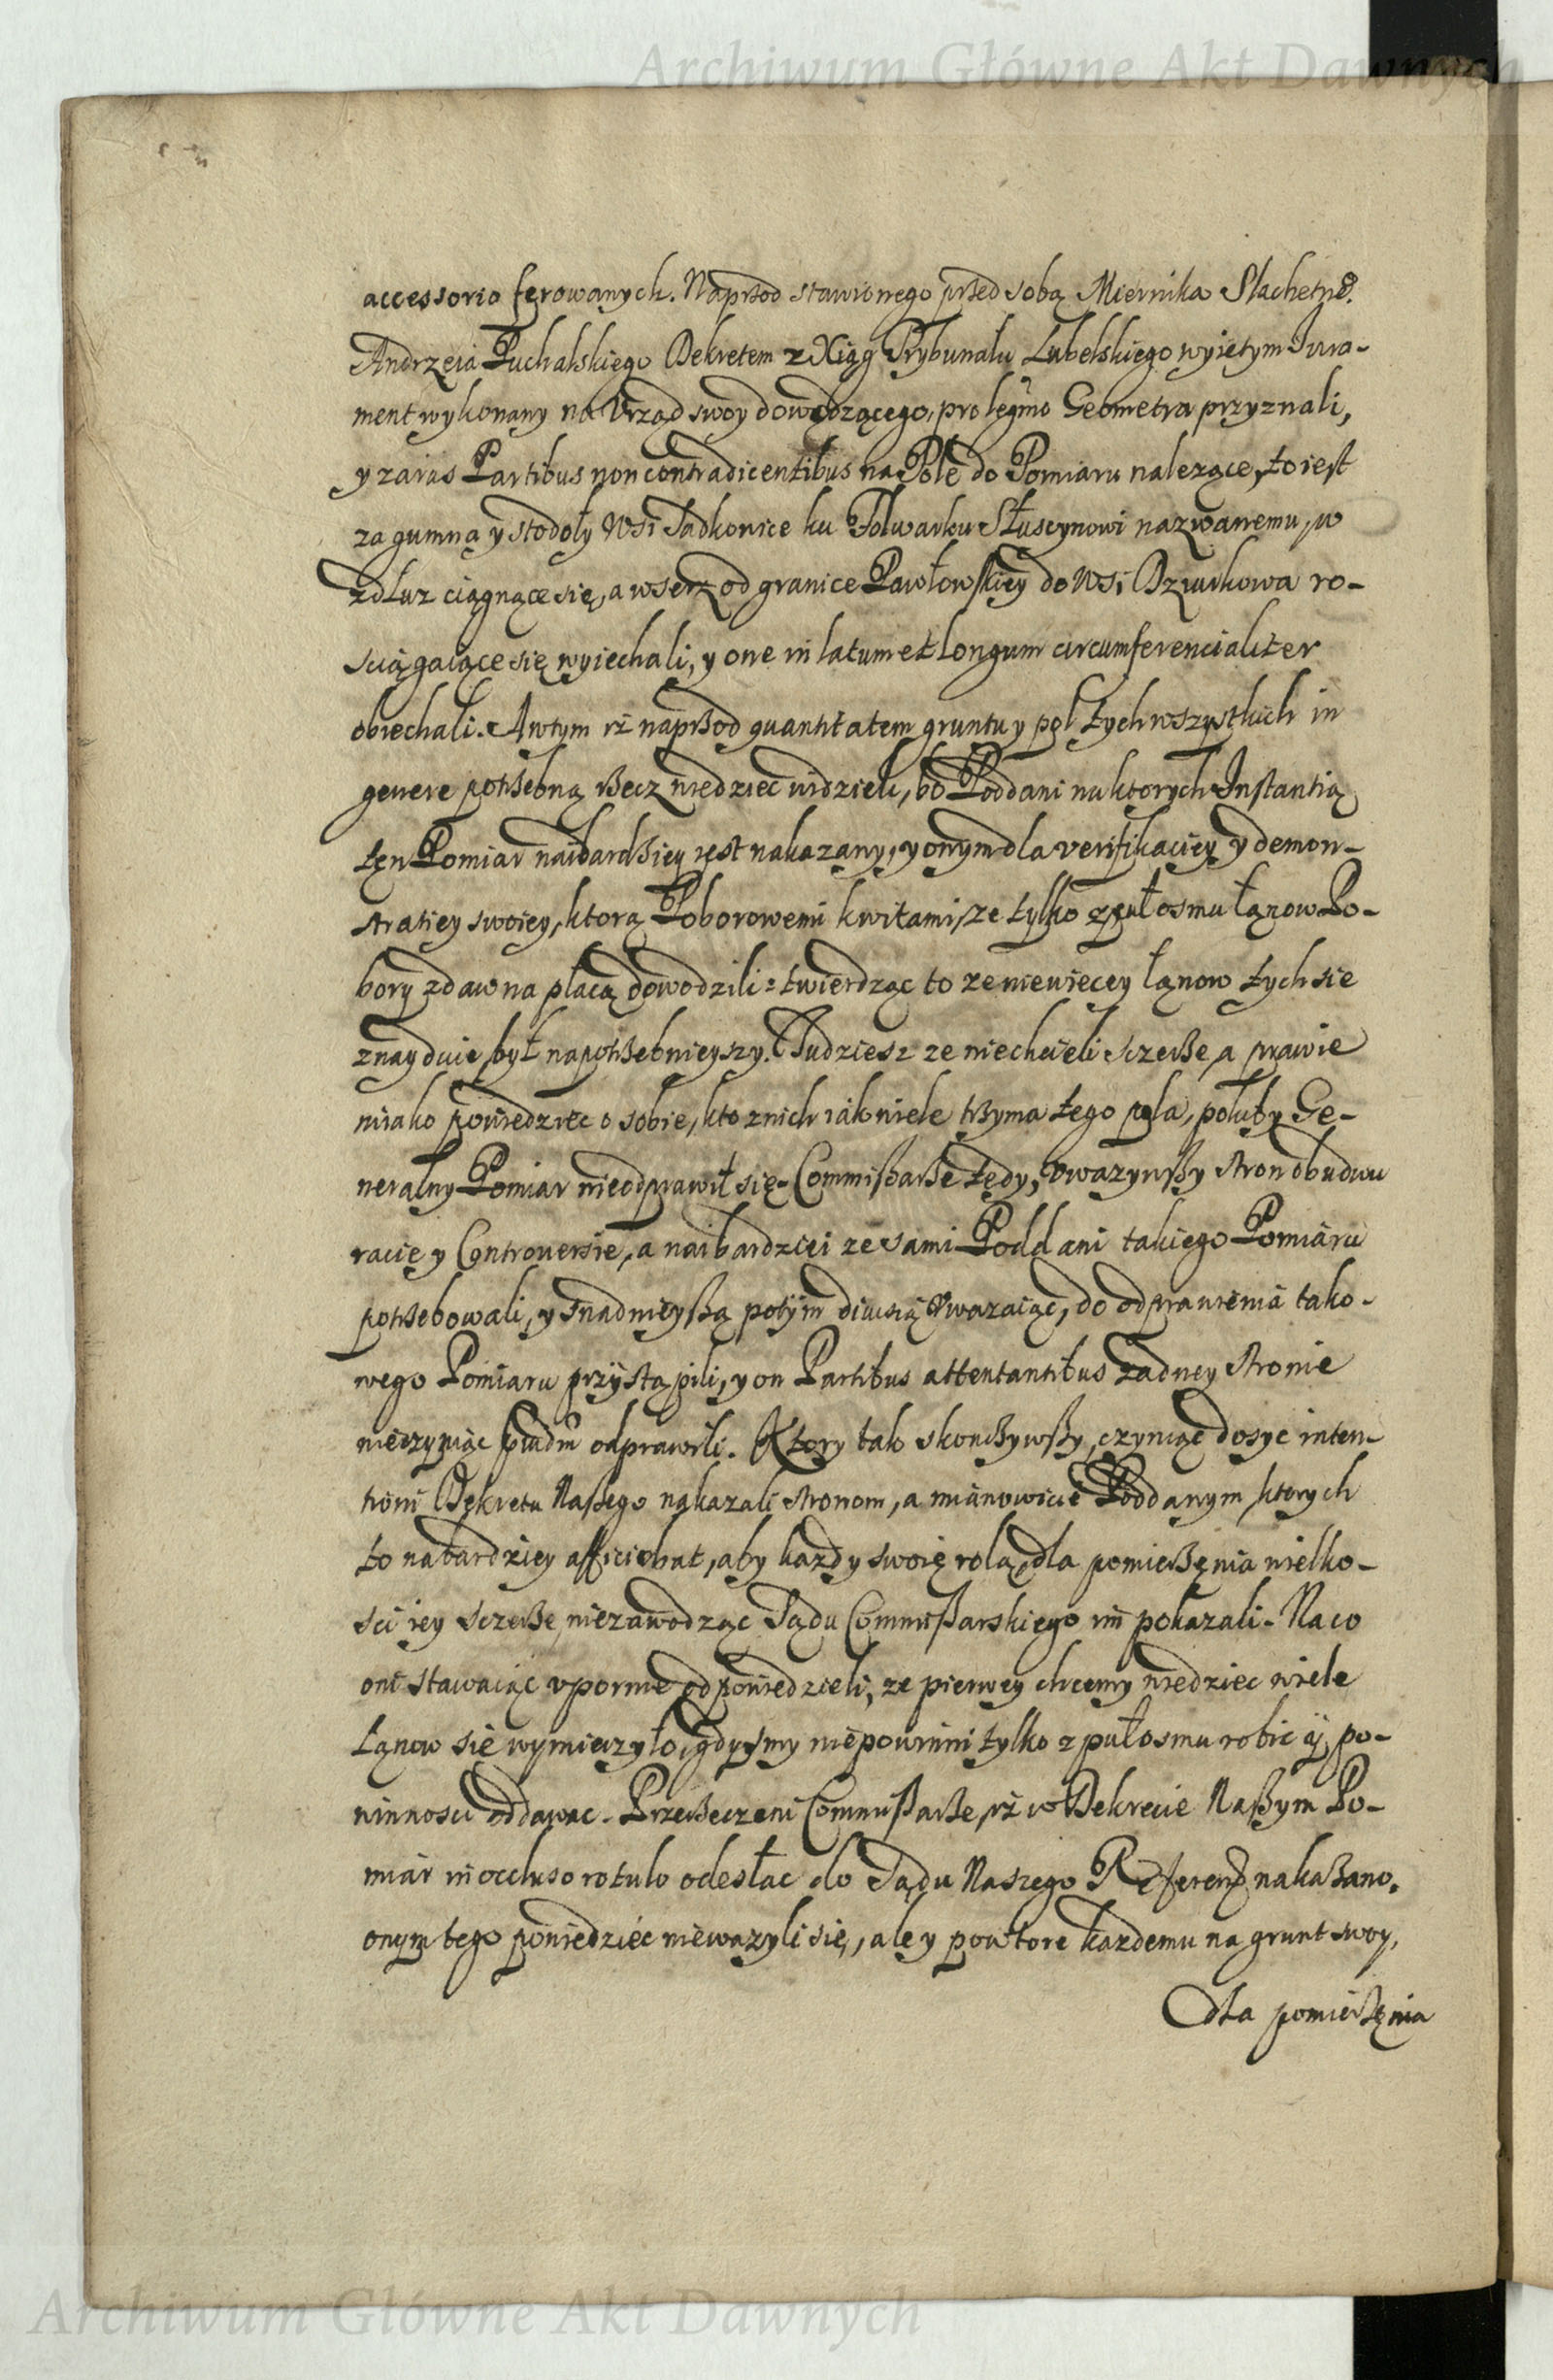 Archiwum Główne Akt Dawnych
accessorio ferowanych. Naprzod stawionego przed sobą Miernika Slachetne⁰
Andrzeia Puchalskiego Dekretem z Xiąg Trybunału Lubelskiego wyiętym Iura-
ment wykonany na Vrząd swoy dowodzącego, pro legmo Geometra przyznali,
y zaras Partibus non contradicentibus na Pole do Pomiaru nalezące, to iest
za gumna y stodoły Wsi Sadkowice ku Folwarku Słuscynowi nazwanemu, w
zdłuz ciągnące się, a wserz od granice Pawłowskiey do Wsi Dziurkowa ro-
sciągaiące się wyiechali, y one in latum et longum circumferencialiter
obiechali. A wtym iż naprzod quantitatem gruntu y pol tych wszystkich in
genere potrzebną rzecz wiedziec widzieli, bo Poddani na ktorych Instantią
ten Pomiar naibardziey iest nakazany, y onym dla verifikaciey y demon-
stratiey swoiey, ktorą Poborowemi kwitami, ze tylko z pułosmu łanow Po-
bory zdawna płacą dowodzili: twierdząc to ze niewiecey łanow tych sie
znayduie, był napotrzebnieyszy. Tudziesz ze niechcieli sczerze, a prawie
niiako powiedziec o sobie, kto znich iak wiele trzyma tego pola, pokąby Ge-
neralny Pomiar nieodprawił się. Commissarze tedy, vwazywszy stron obudwu
racie y Controversie, a naibardziei ze sami Poddani takiego Pomiaru
potrzebowali, y snadnieyszą potym diuisią vwazaiąc, do odprawienia tako-
wego Pomiaru przystąpili, y on Partibus attentantibus zadney stronie
nieczyniąc piudm odprawili. Ktory tak skonczywszy, czyniąc dosyc inten-
tioni Dekretu Naszego nakazali stronom, a mianowicie Poddanym ktorych
to nabardziey afficiebat, aby kazdy swoię rolą, dla pomierzenia wielko-
sci iey sczerze, niezawodząc Sądu Commissarskiego im pokazali. Na co
oni stawaiąc vpornie odpowiedzieli, ze pierwey chcemy wiedziec wiele
Łanow się wymierzyło, gdysmy nie powinni tylko z pułosmu robic y po-
winnosci oddawac. Przerzeczeni Commissarze, iż w Dekrecie Naszym Po-
miar in occluso rotulo odesłac do Sądu Naszego Referend nakazano,
onym tego powiedziec niewazyli się, ale y powtore kazdemu na grunt swoy,
dla pomierzenia
Archiwum Główne Akt Dawnych